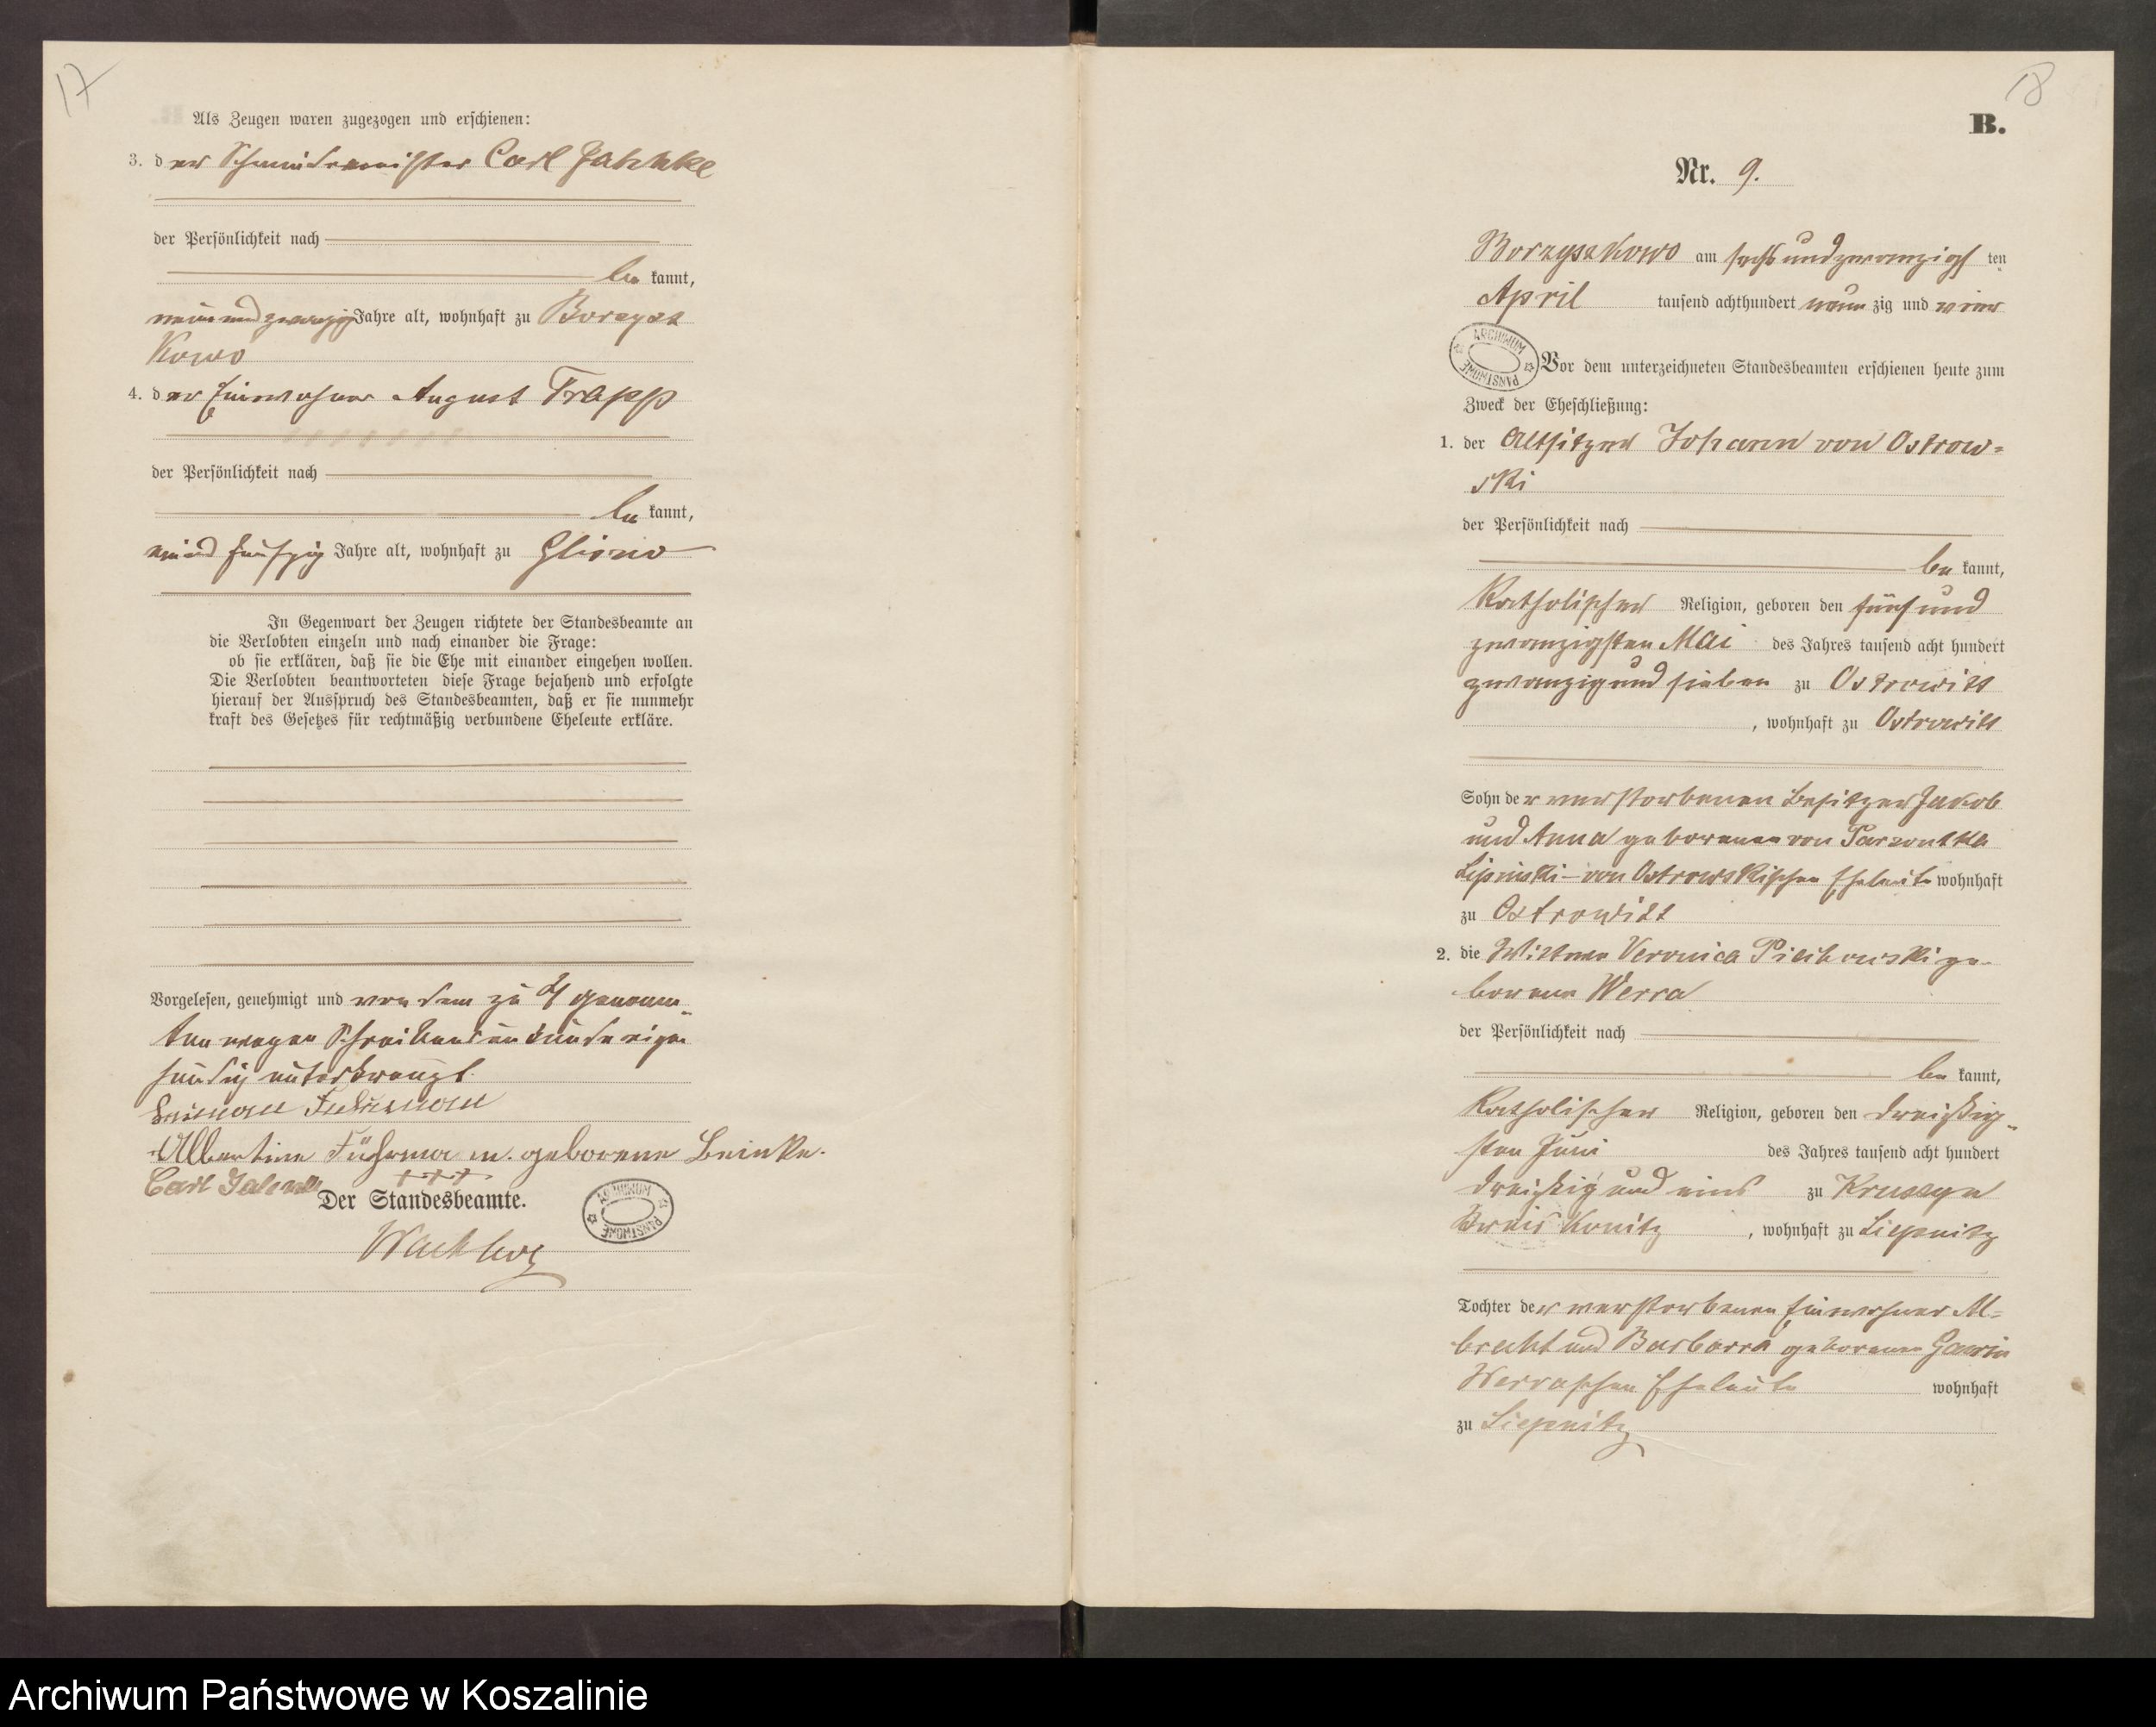 17
Als Zeugen waren zugezogen und erschienen:
3. der Schmiedemeister Carl Jahnke
der Persönlichkeit nach
be kannt,
neun und zwanzig Jahre alt, wohnhaft zu Borzysz
kowo
4. der Einwohner August Trapp
der Persönlichkeit nach
be kannt,
und fünfzig Jahre alt, wohnhaft zu Glisno
In Gegenwart der Zeugen richtete der Standesbeamte an
die Verlobten einzeln und nach einander die Frage:
ob sie erklären, daß sie die Ehe mit einander eingehen wollen.
Die Verlobten beantworteten diese Frage bejahend und erfolgte
hierauf der Ausspruch des Standesbeamten, daß er sie nunmehr
kraft des Gesetzes für rechtmäßig verbundene Eheleute erkläre.
Vorgelesen, genehmigt und von dem zu 4 genann-
ten wegen Schreibensunkunde eigen
händig unterkreuzt.
Albertine Führmann geborene Beinke.
Carl Jahnke +++
Der Standesbeamte.
ARCHIWUM PAŃSTWOWE
18
B.
Nr. 9.
Borzyszkowo am sechsundzwanzigsten
April tausend achthundert neunzig und vier
ARCHIWUM PAŃSTWOWE
Vor dem unterzeichneten Standesbeamten erschienen heute zum
Zweck der Eheschließung:
1. der Altsitzer Johann von Ostrow-
ski
der Persönlichkeit nach
be kannt,
Katholischer Religion, geboren den fünf und
zwanzigsten Mai des Jahres tausend acht hundert
zwanzig und sieben zu Ostrowitt
, wohnhaft zu Ostrowitt
Sohn der verstorbenen Besitzer Jakob
und Anna geborenen von
Lipinski - von Ostrowskischen Eheleute wohnhaft
zu Ostrowitt
2. die Wittwe Veronica ge-
borene Werra
der Persönlichkeit nach
be kannt,
Katholischer Religion, geboren den dreißig-
sten Juni des Jahres tausend acht hundert
dreißig und eins zu Kruszyn
Kreis Konitz, wohnhaft zu Liepnitz
Tochter der verstorbenen Einwohner Al-
brecht und Barbara geborenen
Werraschen Eheleute wohnhaft
zu Liepnitz
Archiwum Państwowe w Koszalinie